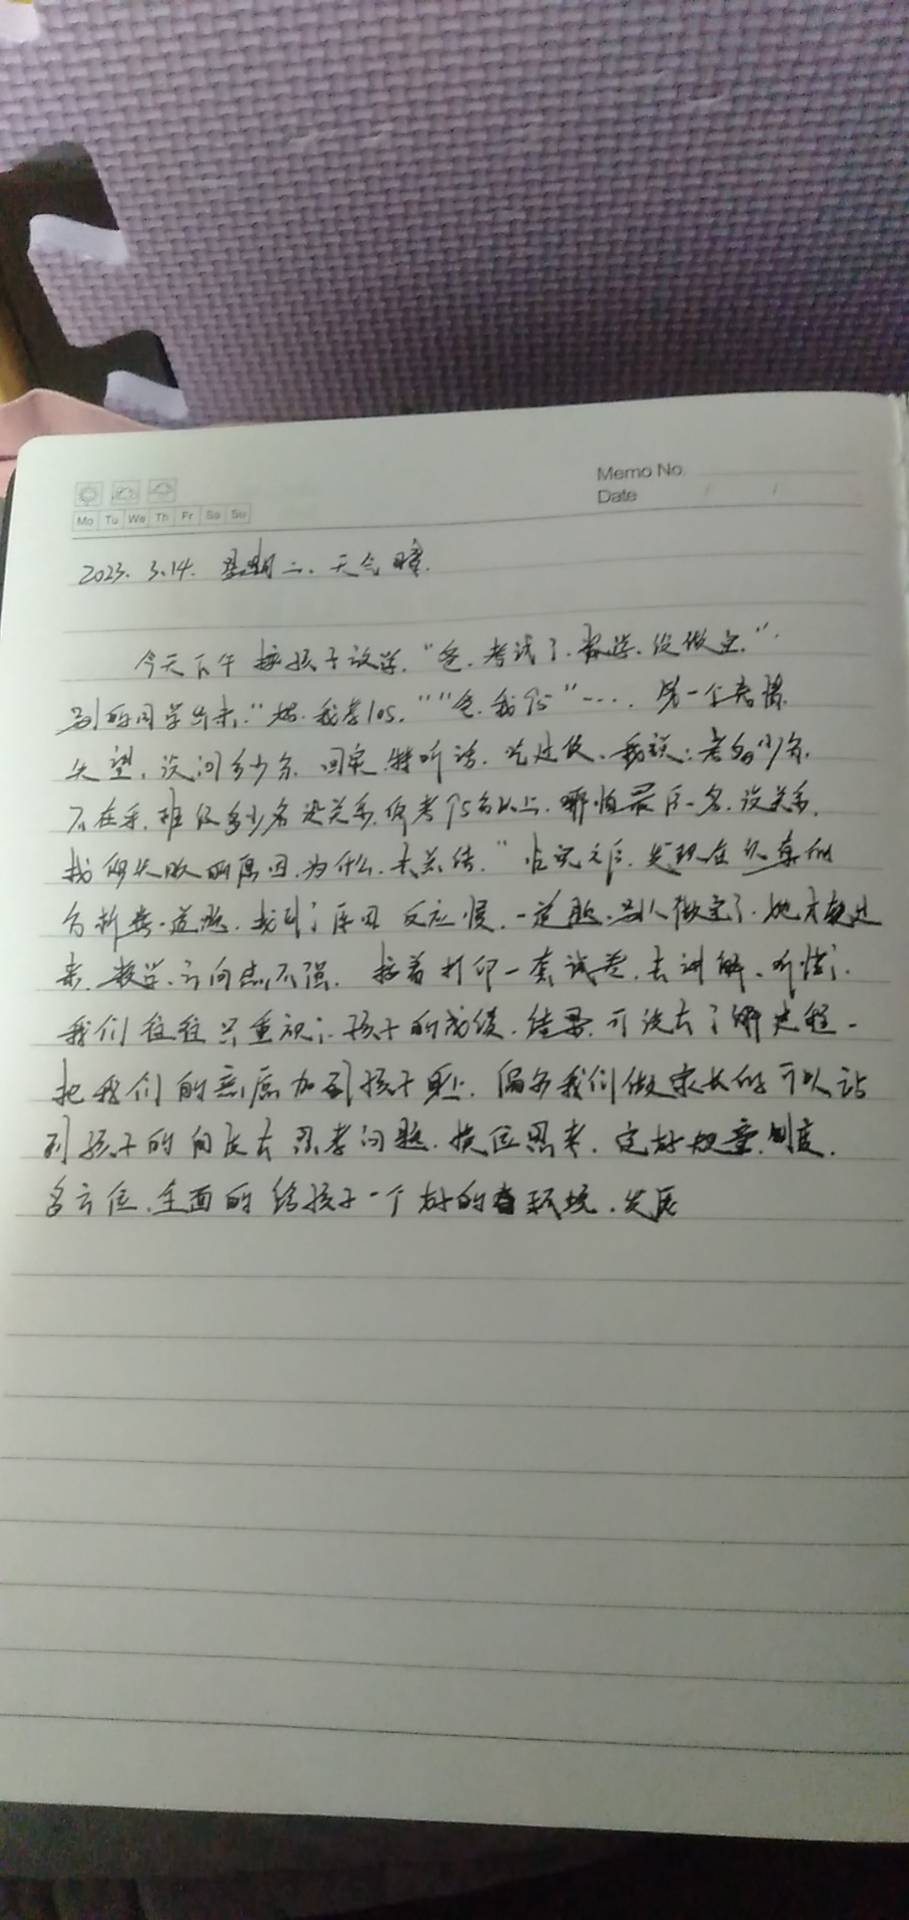 Memo No.
Date / /
Mo Tu We Th Fr Sa Su
2023. 3.14. 星期二. 天气晴.
今天下午接孩子放学. "爸. 考试了. 数学. 没做完."
别的同学出来. "妈. 我考105." "爸. 我95" …. 另一个表情
失望, 没问多少分. 回家 特听话. 吃过饭、我说: 考多少分.
不在乎. 班级多少名 没关系. 你考95分以上. 哪怕最后一名. 没关系.
找你失败的原因. 为什么. 去总结." 发现
分析每一道题. 找到了原因 反应慢. 一道题. 别人做完了. 她才
来. 数学. 方向感不强. 接着打印一套试卷. 去讲解、听懂了.
我们往往只重视了孩子的成绩. 结果. 可没去了解过程.
把我们的意愿加到孩子身上. 我们做家长的可以站
到孩子的角度去思考问题. 换位思考. 定好规章. 制度.
多方位. 全面的给孩子一个好的环境. 发展